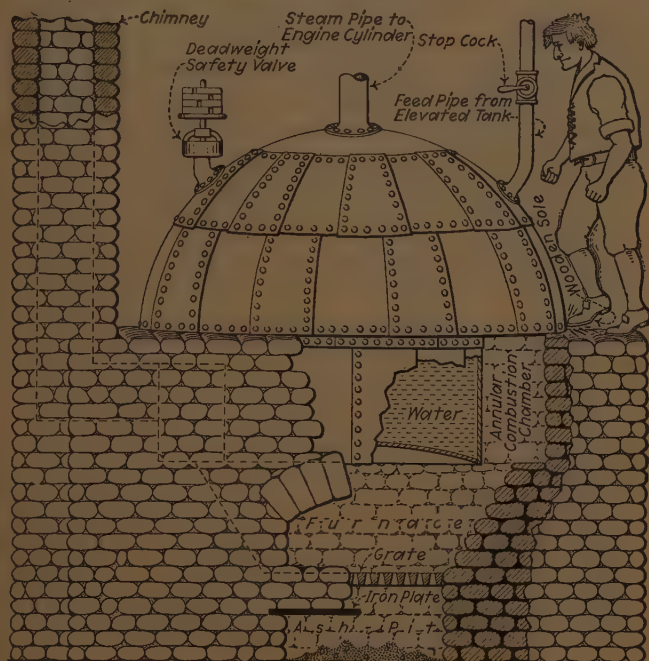 Chimney
Steam Pipe to
Engine Cylinder
Stop Cock
Deadweight
Safety Valve
Feed Pipe from
Elevated Tank
Wooden Sole
Water
Annular
Combustion
Chamber
Furnace
Grate
Iron Plate
Ash Pit